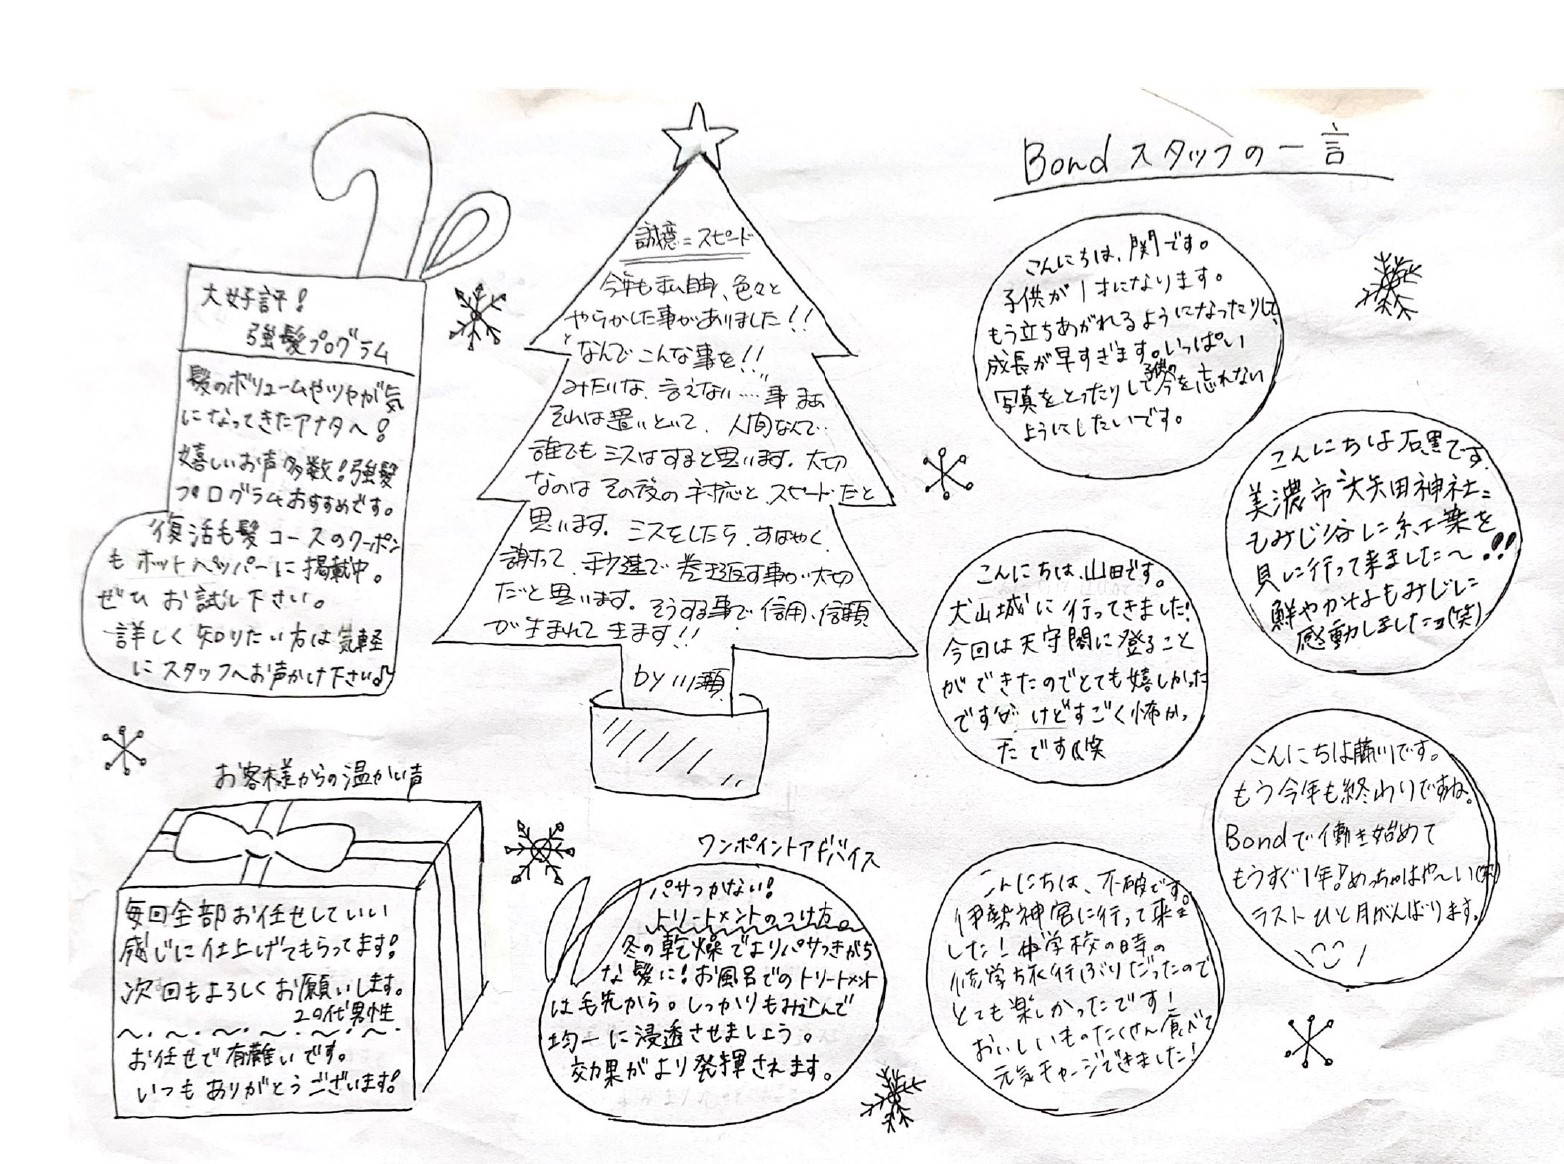 大好評!
強髪プログラム
髪のボリュームやツヤが気
になってきたアナタへ!
嬉しいお声多数!強髪
プログラムおすすめです。
復活毛髪コースのクーポン
もホットペッパーに掲載中。
ぜひお試し下さい。
詳しく知りたい方は気軽
にスタッフへお声かけ下さい♪
お客様からの温かい声
毎回全部お任せしていい
感じに仕上げてもらってます!
次回もよろしくお願いします。
20代男性
お任せで有難いです。
いつもありがとうございます!
誠意=スピード
今年も私自身、色々と
やらかした事がありました!!
なんでこんな事を!!
みたいな、言えない……事 まぁ
それは置いといて、人間なんで…
誰でもミスはすると思います。大切
なのはその後の対応とスピードだと
思います。ミスをしたら、すばやく、
謝って、秒速で巻き返す事が大切
だと思います。そうする事で信用、信頼
が生まれて来ます!!
by川瀬
ワンポイントアドバイス
パサつかない!
トリートメントのつけ方。
冬の乾燥でよりパサつきがち
な髪に!お風呂でのトリートメント
は毛先から。しっかりもみ込んで
均一に浸透させましょう。
効果がより発揮されます。
Bondスタッフの一言
こんにちは、関です。
子供が1才になります。
もう立ちあがれるようになったりして、
成長が早すぎます。いっぱい
写真をとったりして今を忘れない
ようにしたいです。
こんにちは石黒です。
美濃市"大矢田神社"
もみじ谷に紅葉を
見に行って来ました〜!!
鮮やかなもみじに
感動しましたヨ(笑)
こんにちは、山田です。
犬山城に行ってきました!
今回は天守閣に登ること
ができたのでとても嬉しかった
ですが けどすごく怖かっ
たです(笑
こんにちは藤川です。
もう今年も終わりですね。
Bondで働き始めて
もうすぐ1年!めっちゃはや〜い(笑)
ラストひと月がんばります。
こんにちは、不破です。
伊勢神宮に行って来ま
した!中学校の時の
修学旅行ぶりだったので
とても楽しかったです!
おいしいものたくさん食べて
元気チャージできました!